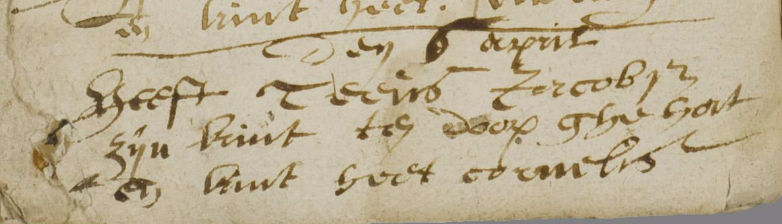 en kint heet.
Den 6 april
Heeft Teeus Jacobsz
zijn kint ten doop ghehat
en kint heet cornelis